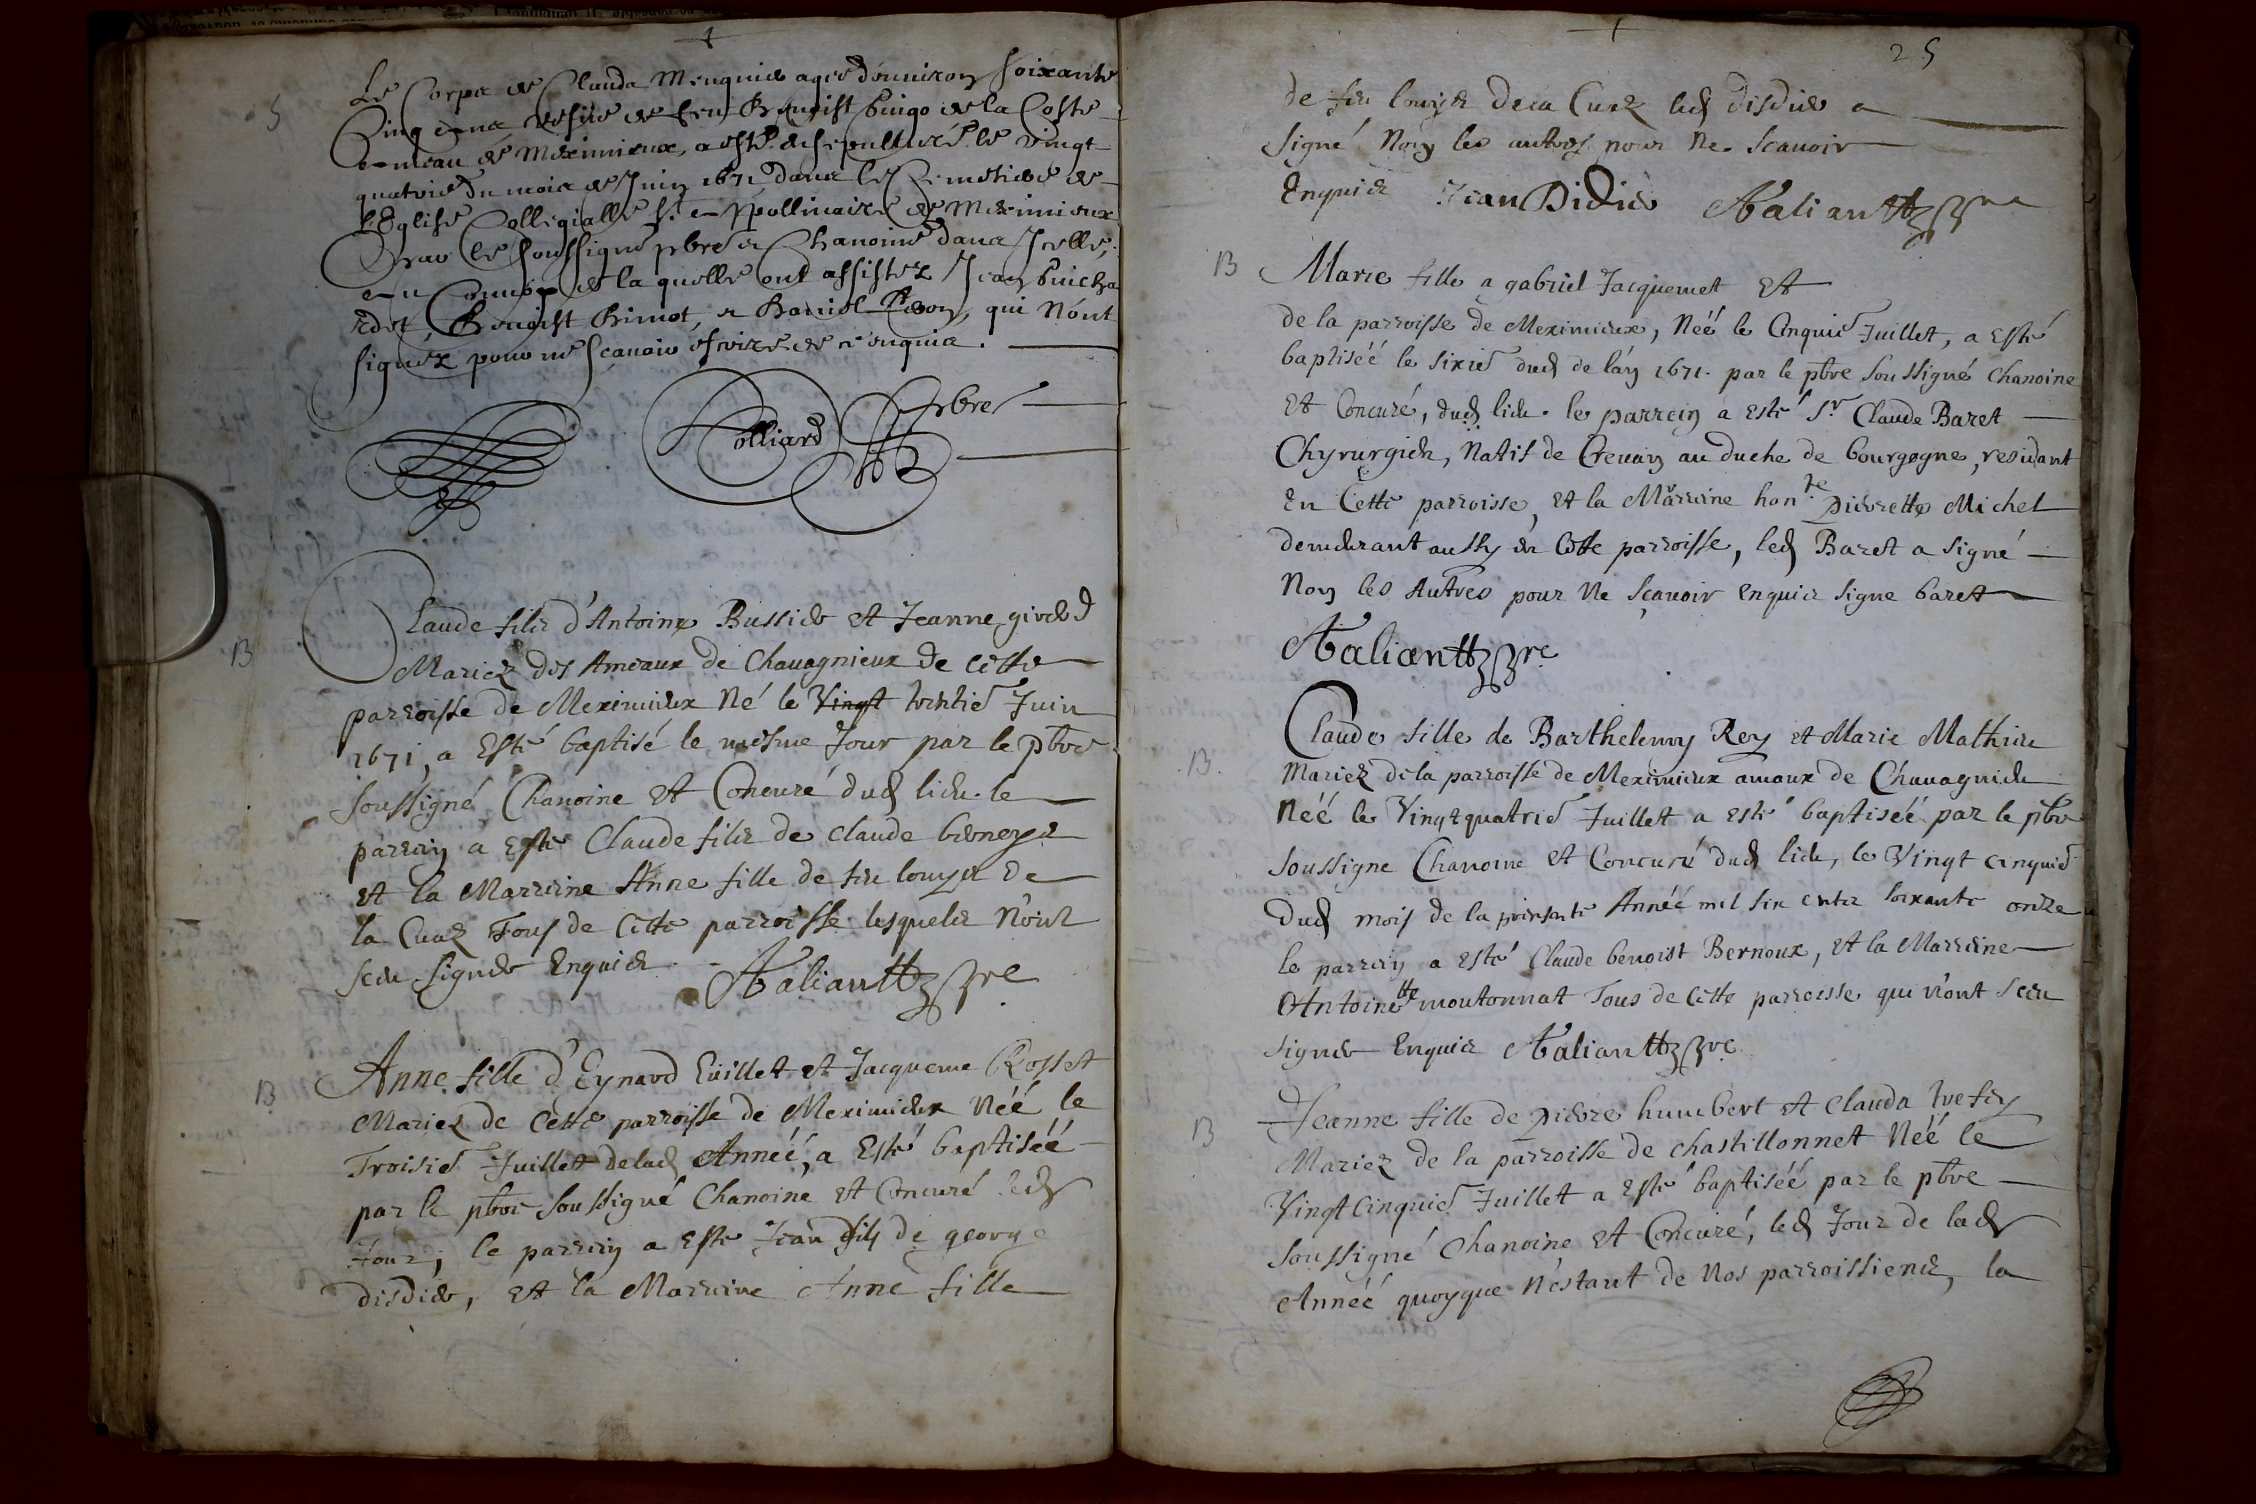 S
Le Corps de Clauda Meugnie agée d'environ soixante
Cinq ans vefve de feu Benoist Guigo de la Coste
ameau de Meximieux, a esté ensepulturé le vingt
quatrie du mois de Juin 1671 dans le Cemetiere de
l'Eglise Collegialle St Appollinaire de Meximieux
par le soussigné pbre et Chanoine dans Icelle,
en Convoy de la quelle ont assistez Jean Guicha
rdet, Benoist Brimot, et qui N'ont
signéz pour ne sçavoir escrire de ce enquis.
Colliard pbre
B
Claude fils d'Antoine Bussier et Jeanne girerd
Mariez des Ameaux de Chavagnieux de cette
parroisse de Meximieux Né le Vingt trentie Juin
1671, a Esté baptisé le mesme Jour par le pbre
soussigné Chanoine et Concuré dud lieu. le
parrein a Esté Claude fils de claude berneys
et la Marreine Anne fille de feu louys De
la Cuaz Tous de Cette parroisse lesquels N'ont
sceu signer Enquis Aalianttz pre
B
Anne fille d'Eynard Guillet et Jacqueme Rosset
Mariez de Cette parroisse de Meximieux Néé le
Troisie Juillet de lad Annéé, a Esté baptiséé
par le pbre soussigné Chanoine et Concuré led
Jour, le parrein a Esté Jean fils de george
disdier, et la Marreine Anne fille
25
de feu louys De la Cuaz led disdier a
signé Non les autres pour Ne scavoir
Enquis Jean Didier Aalianttz pre
B
Marie fille a gabriel Jacquemet et
de la parroisse de Meximieux, Néé le Cinquie Juillet, a Esté
baptiséé le sixie dud de l'an 1671. par le pbre soussigné Chanoine
et Concuré, dud lieu. le parrein a Esté Sr Claude Baret
Chyrurgien, Natif de Crevan au duche de bourgogne, residant
En Cette parroisse, et la Marreine honte pierrette Michel
demeurant aussy en Cette parroisse, led Baret a signé
Non les Autres pour Ne sçavoir Enquis signe baret
Aalianttz pre
B.
Claude fille de Barthelemy Rey et Marie Mathieu
Mariez de la parroisse de Meximieux amaux de Chavagnieu
Néé le Vingt quatrie Juillet a esté baptiséé par le pbre
soussigne Chanoine et Concuré dud lieu, le Vingt cinquie
dud mois de la presente Annéé mil six cents soixante onze
le parrein a esté Claude benoist Bernoux, et la Marreine
Antoinette moutonnat Tous de Cette parroisse qui n'ont sceu
signer Enquis Aalianttz pre
B
Jeanne fille de pierre humbert et Clauda
Mariez de la parroisse de chastillonnet Néé le
Vingt Cinquie Juillet a esté baptiséé par le pbre
soussigné Chanoine et Concuré, led Jour de lad
Annéé quoyque N'estant de Nos parroissiens, la